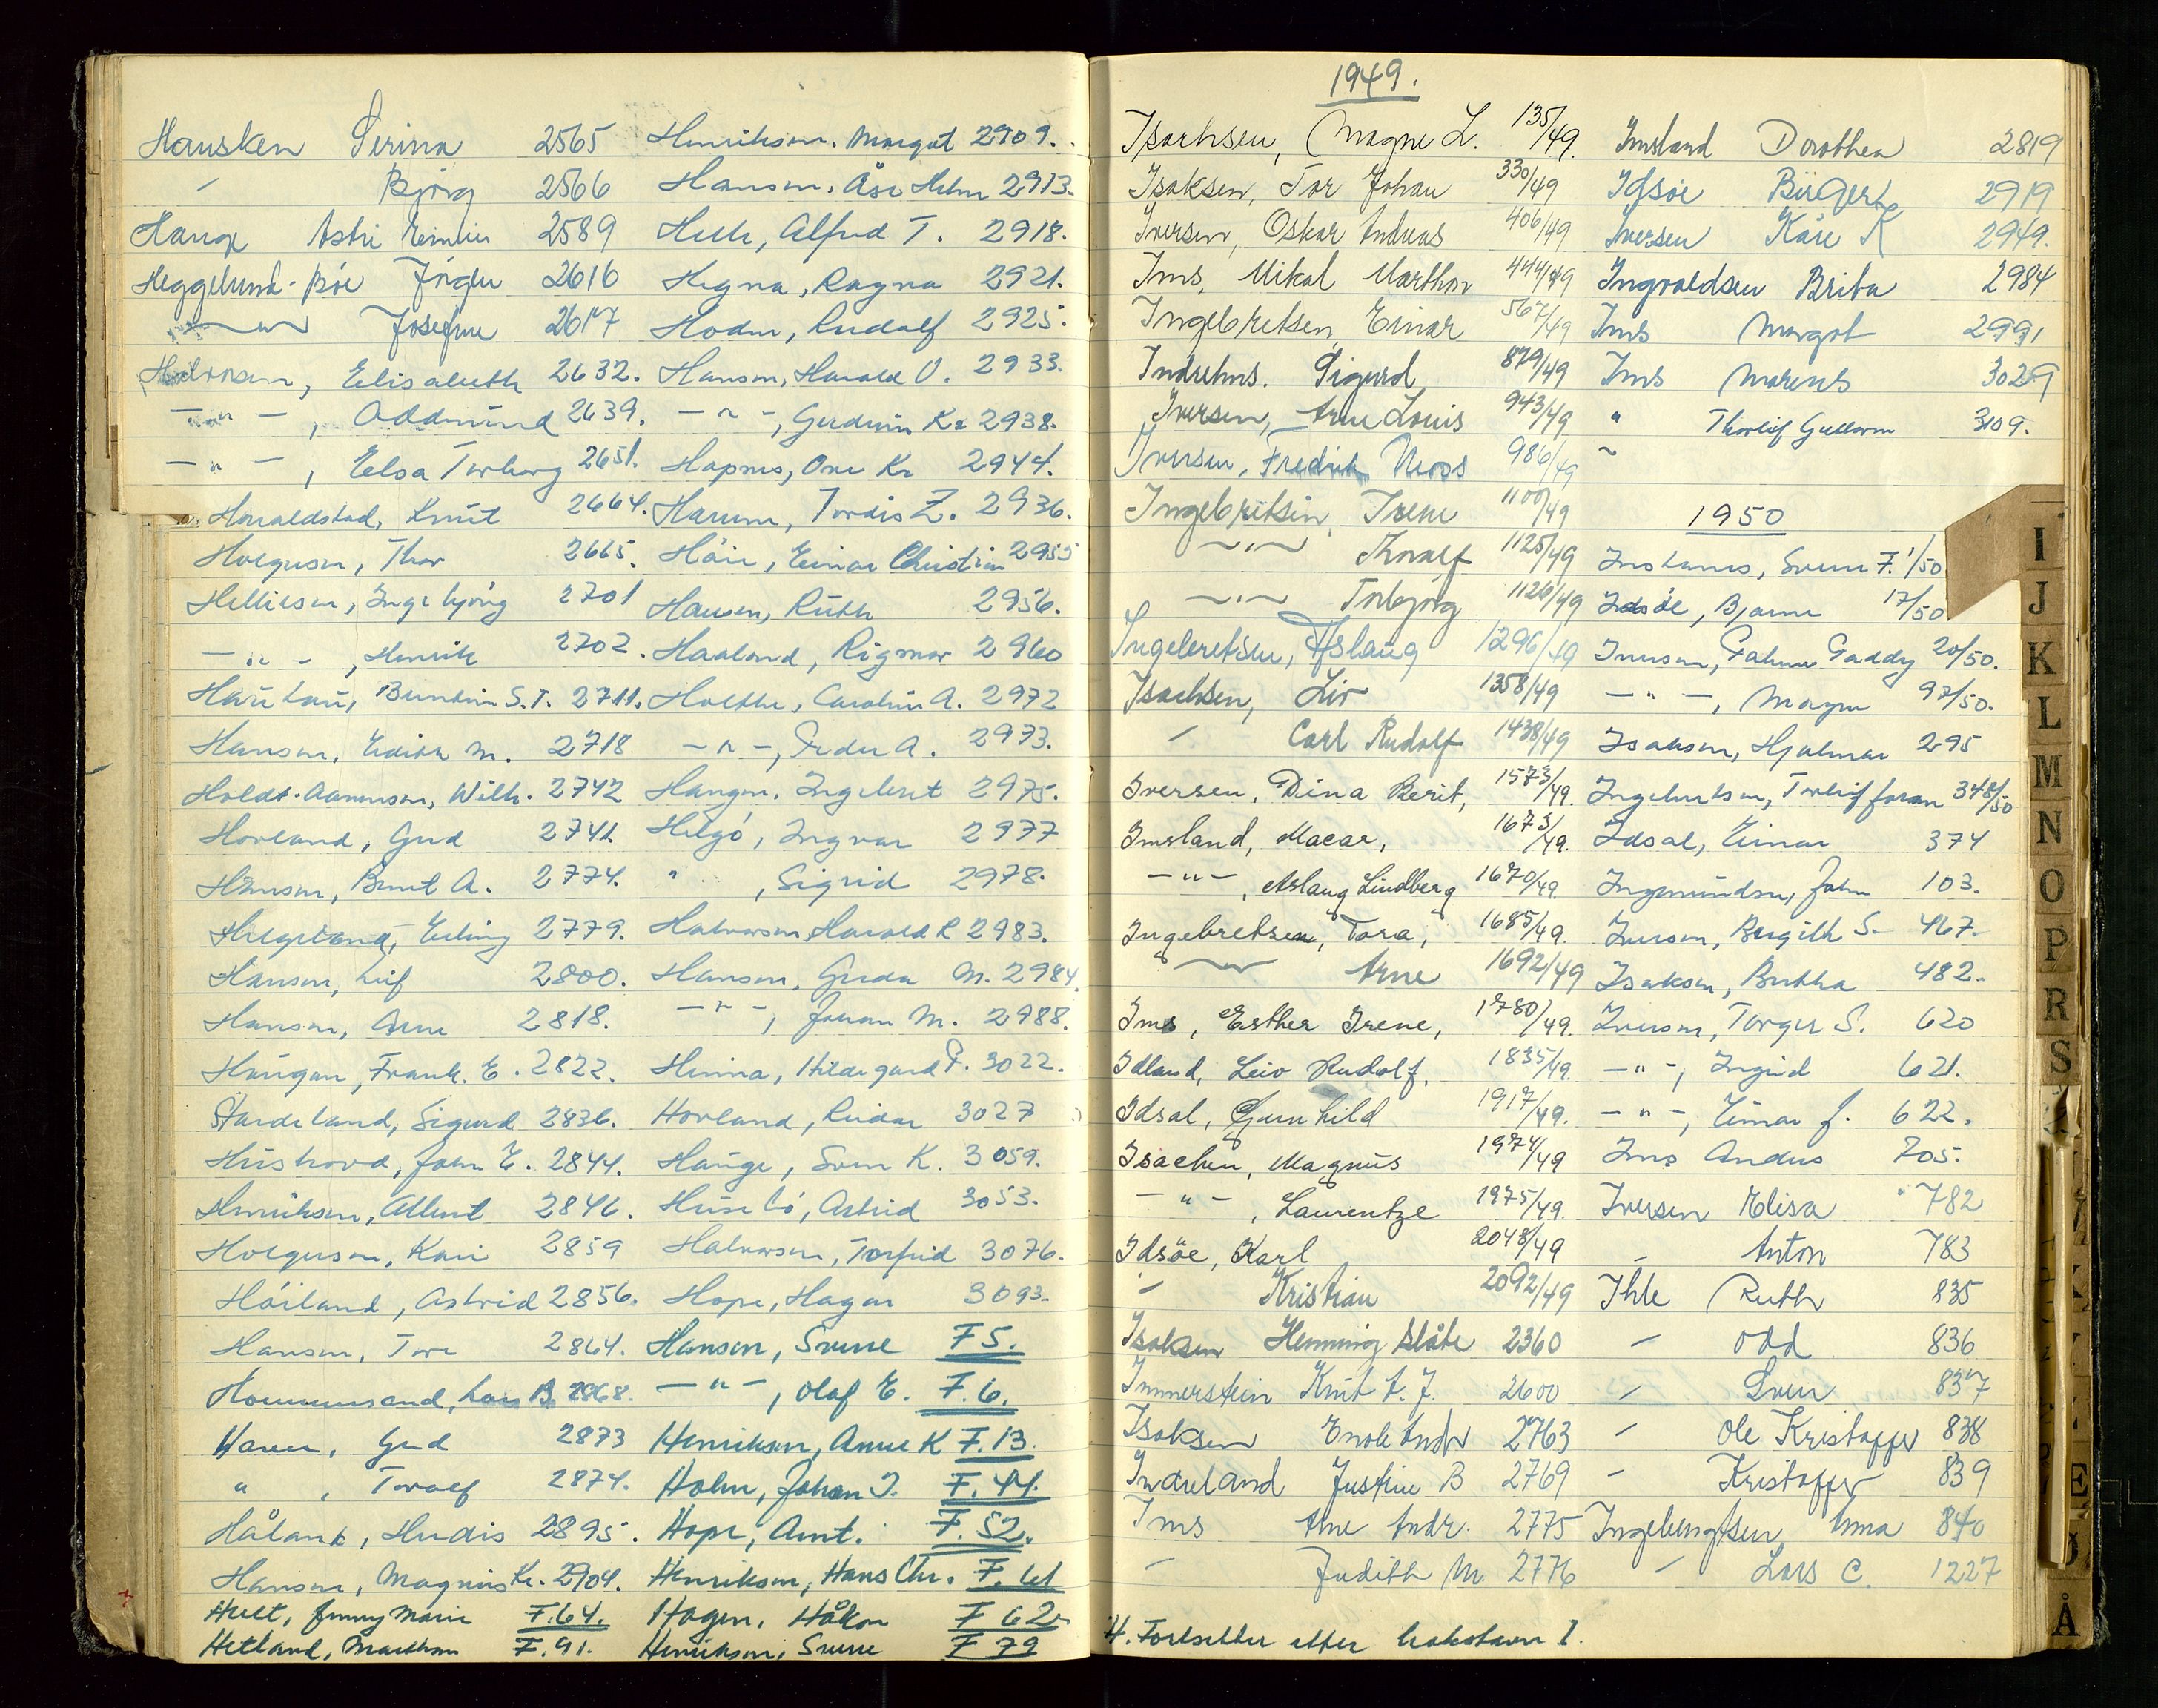 Hausken Serina 2565
" Bjørg 2566
Hauge Astri Emilie 2589
Heggelund-Bøe Jørgen 2616
—"— Josefine 2617
Halvorsen, Elisabeth 2632.
—"—, Oddmund 2639.
—"—, Elsa Torborg 2651.
Haraldstad, Knut 2664.
Holgersen, Thor 2665.
Helliesen, Ingebjørg 2701
—"—, Henrik 2702.
Haukali, S.T. 2711.
Hansen, Edith M. 2718
Holdt-Aanensen, Wilh. 2742
Hovland, Gud 2741
Hansen, Bernt A. 2774.
Helgeland, Erling 2779.
Hansen, Leif 2800.
Hansen, Arne 2818.
Haugan, Frank. E. 2822.
Hardeland, Sigurd 2836.
Hustvovd, John E. 2844.
Henriksen, Albert 2846.
Holgersen, Kari 2859
Høiland, Astrid 2856.
Hansen, Tore 2864.
Hommersand, Lars B. 2868.
Haven, Gud 2873
" , Toralf 2874.
Håland, Herdis 2895.
Hansen, Magnus Kr. 2904.
Hult, Jenny Marie F.64.
Hetland, Marthon F.91.
Henriksen, Margot 2909.
Hansen, Åse Helen 2913.
Helle, Alfred T. 2918.
Hegna, Ragna 2921.
Hodne, Rudolf 2925.
Hansen, Harald O. 2933.
—"—, Gudrun Kr 2938.
Hopsnes, Ove Kr 2944.
Harum, Tordis Z. 2936.
Håir, Einar Christian 2955
Hansen, Ruth 2956.
Haaland, Rigmor 2960
Holthe, Carolin A. 2972
—"—, Peder A. 2973.
Haugen, Ingebret 2975.
Helgø, Ingvar 2977
" , Sigrid 2978.
Halvorsen, Harald R 2983.
Hansen, Gerda M. 2984
—"—, Johan M. 2988.
Hinna, Hildegard P. 3022.
Hovland, Reidar 3027
Hauge, Svein K. 3059.
Husebø, Astrid 3053.
Halvorsen, Torfrid 3076.
Hope, Hagar 3093.
Hansen, Sverre F 5.
—"—, Olaf E. F. 6.
Henriksen, Anne K F. 13.
Holm, Johan I. F. 44.
Hope, Arnt. F. 52.
Henriksen, Hans Chr. F. 61
Hagen, Håkon F 62
Henriksen, Sverre F 79
1949.
Isachsen, Magne L. 135/49.
Isaksen, Tor Johan 330/49
Iversen, Oskar Andreas 406/49
Ims, Mikal Marthon 444/49
Ingebretsen, Einar 567/49
Indrehus. Sigurd 879/49
Iversen, Arne Louis 943/49
Iversen, Fredrik Moss 986/49
Ingebretsen, Irene 1100/49
—"— Thoralf 1125/49
—"— Torbjørg 1126/49
Ingebretsen, Aslaug 1296/49
Isachsen, Liv 1358/49
" Carl Rudolf 1438/49
Iversen, Dina Berit, 1573/49.
Imsland, Macar, 1673/49.
—"—, Aslaug Lindberg 1670/49.
Ingebretsen, Tora, 1685/49.
—"— Arne 1692/49
Ims, Esther Irene, 1780/49.
Idland, Leiv Rudolf, 1835/49.
Idsal, Gunhild 1917/49.
Isachen, Magnus 1974/49
—"—, Laurentze 1975/49.
Idsøe, Karl 2048/49
" Kristian 2092/49
Isaksen Henning Slåte 2360
Immerstein Knut A. J. 2600
Isaksen Enok Andr 2763
Indreland Justine B 2769
Ims Arne Andr. 2775
" Judith M. 2776
H. Fortsetter etter bokstaven I.
Imsland Dorothea 2819
Idsøe Birger 2919
Iversen Kåre K 2949.
Ingvaldsen Brita 2984
Ims Margot 2991
Ims Marens 3029
" Thorleif Guttorm 3109.
1950
Instanes, Sverre F. 1/50
Idsøe, Bjarne 17/50
Iversen, Gaddy 20/50.
—"—, Magne 97/50.
Isaksen, Hjalmar 295
Ingebretsen, Torleif Johan 348/50
Idsal, Einar 374
Ingemundsen, John 103.
Iversen, Bergith S. 467.
Isaksen, Bertha 482.
Iversen, Torger S. 620
—"—, Ingrid 621.
—"—, Einar J. 622.
Ims Andreas 705.
Iversen Elisa 782
" Anton 783
Ihle Ruth 835
" Odd 836
" Sven 837
" Ole Kristoffer 838
" Kristoffer 839
Ingebrigtsen Anna 840
" Lars C. 1227
I
J
K
L
M
N
O
P
R
S
E
Å